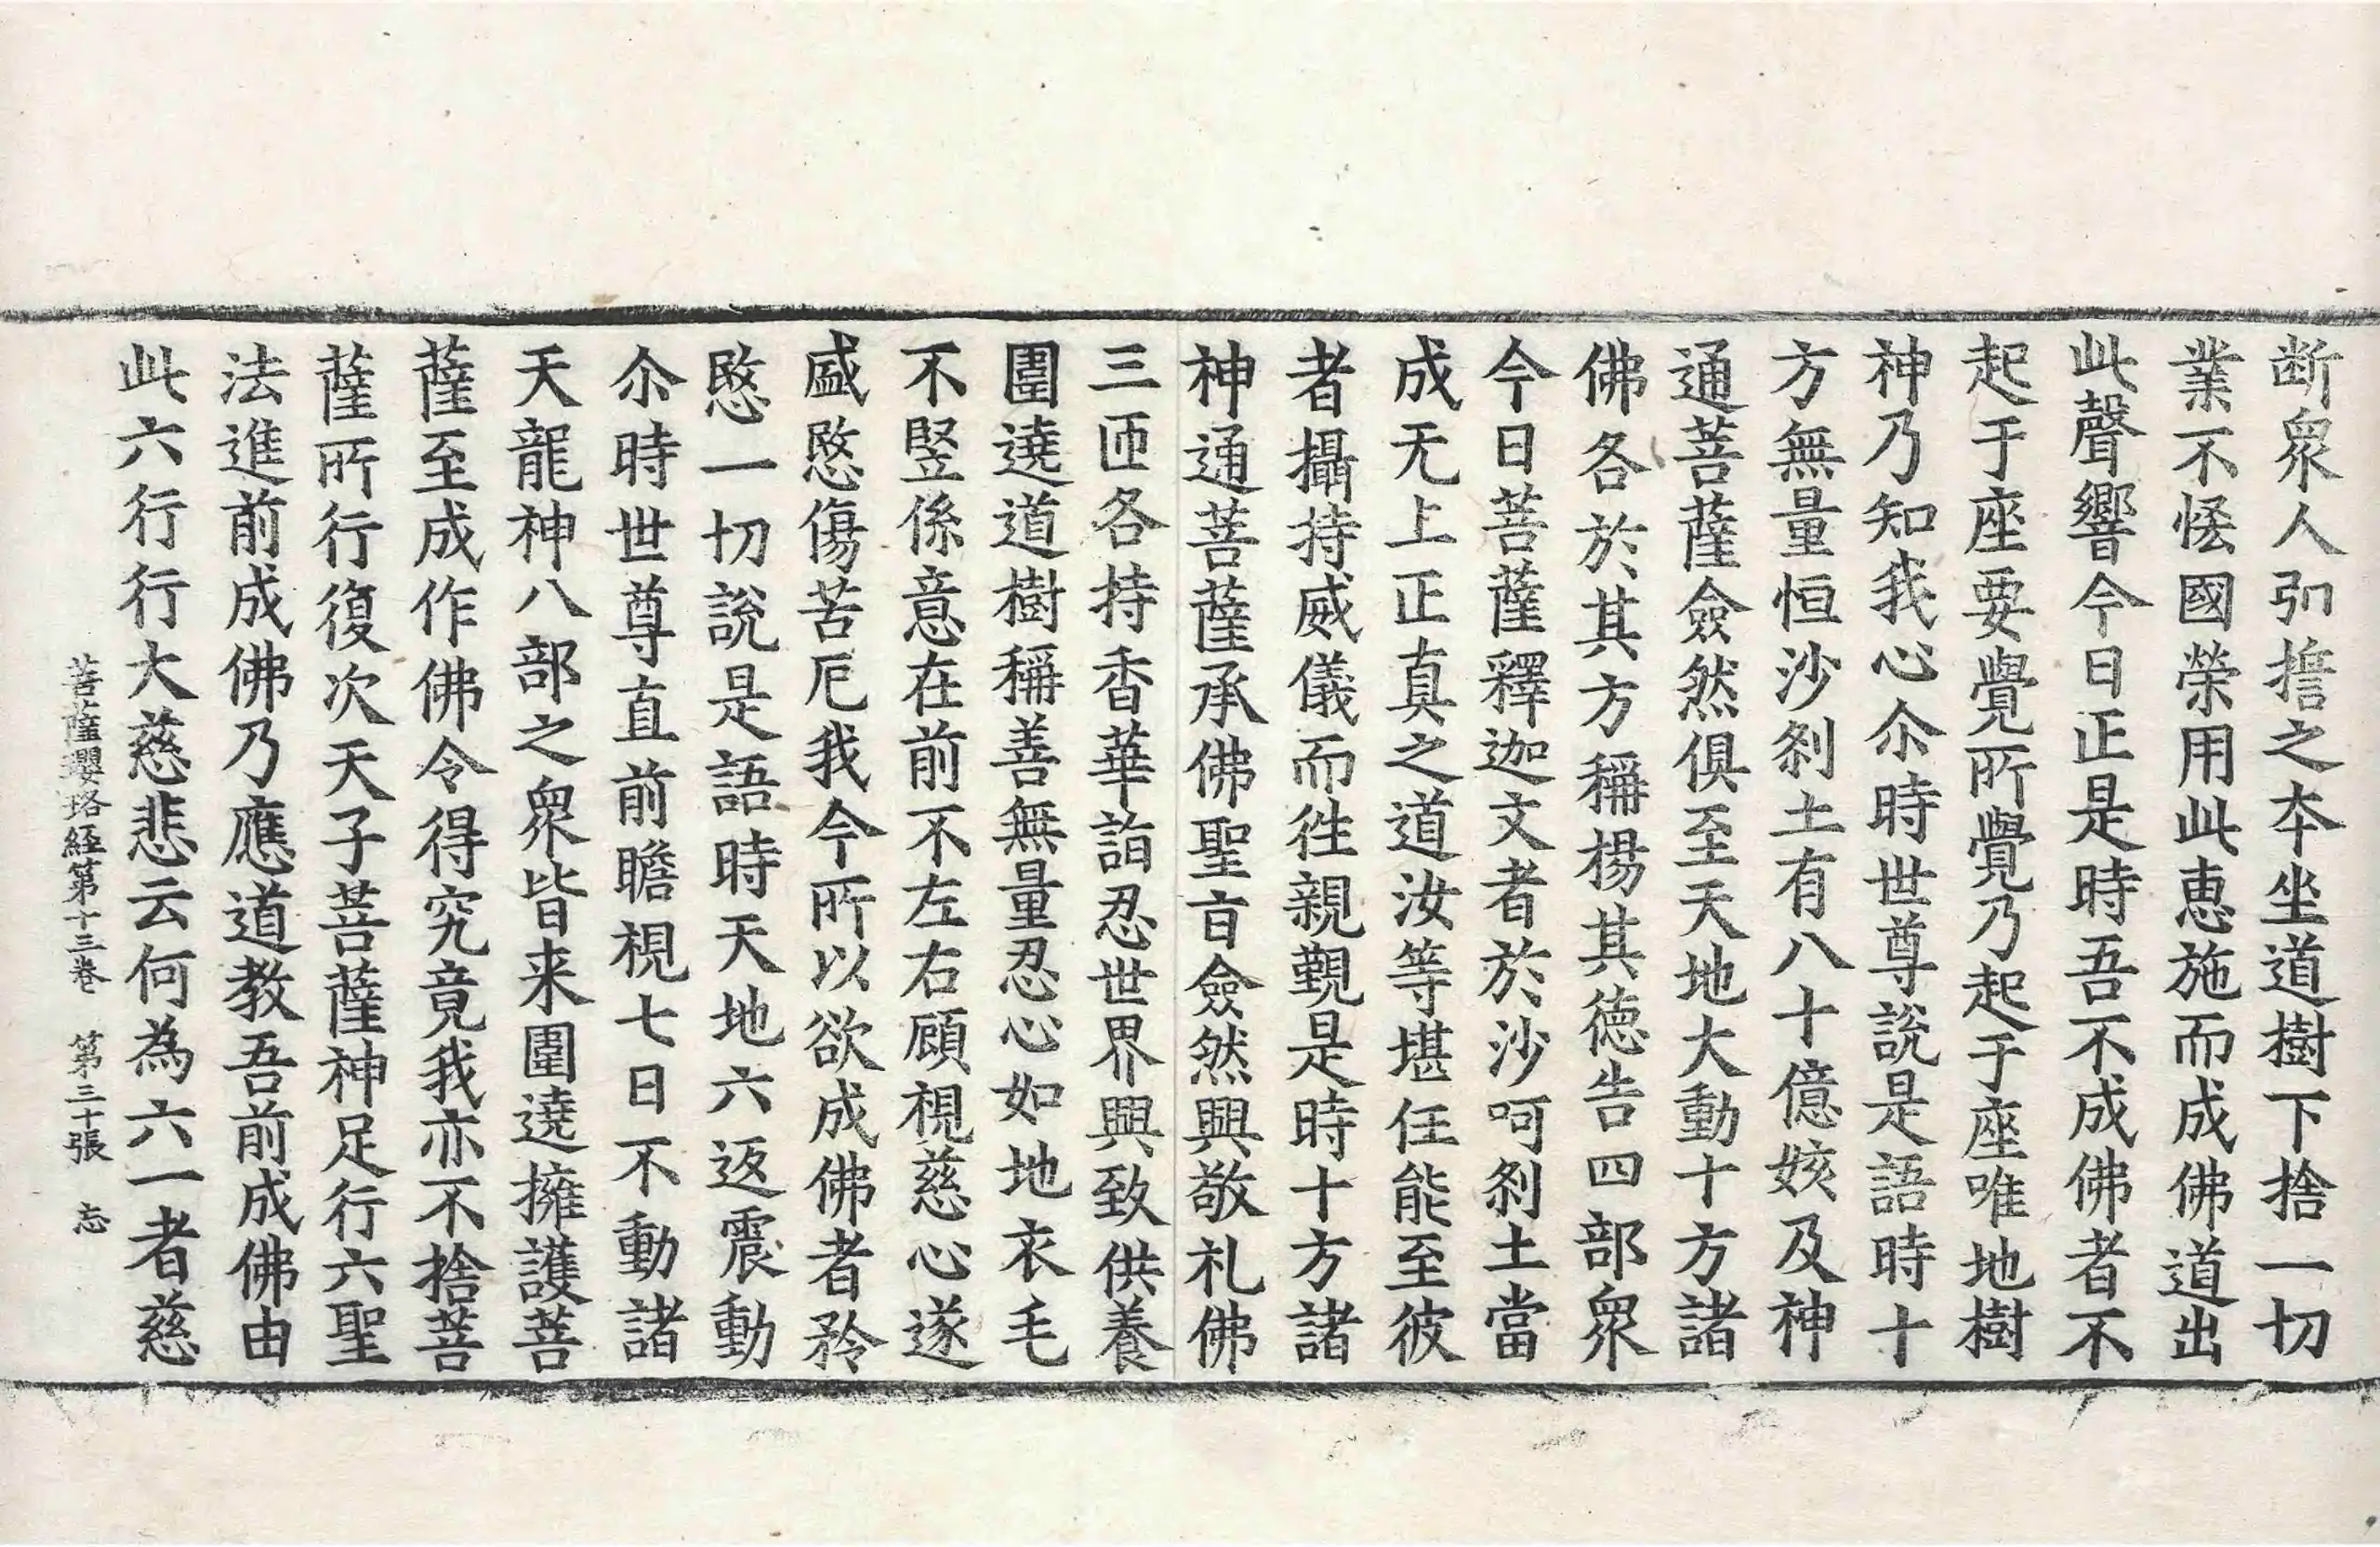 断衆人引擔之本坐道樹下捨一切
業不恡國榮用此惠施而成佛道出
此聲響今日正是時吾不成佛者不
起于座要覺所覺乃起于座唯地樹
神乃知我心尒時世尊說是語時十
方無量恒沙刹土有八十億姟及神
通菩薩僉然俱至天地大動十方諸
佛各於其方稱楊其德告四部衆
今日菩薩釋迦文者於沙呵刹土當
成无上正真之道汝等堪任能至彼
者攝持威儀而徃親覲是時十方諸
神通菩薩承佛聖旨僉然興敬礼佛
三匝各持香華詣忍世界興致供養
圍遶道樹稱善無量忍心如地衣毛
不竪係意在前不左右顧視慈心遂
盛愍傷苦厄我今所以欲成佛者矜
愍一切說是語時天地六返震動
尒時世尊直前瞻視七日不動諸
天龍神八部之衆皆来圍遶擁護菩
薩至成作佛令得究竟我亦不捨菩
薩所行復次天子菩薩神足行六聖
法進前成佛乃應道教吾前成佛由
此六行行大慈悲云何為六一者慈
菩薩瓔珞經第十三卷 第三十張 忘